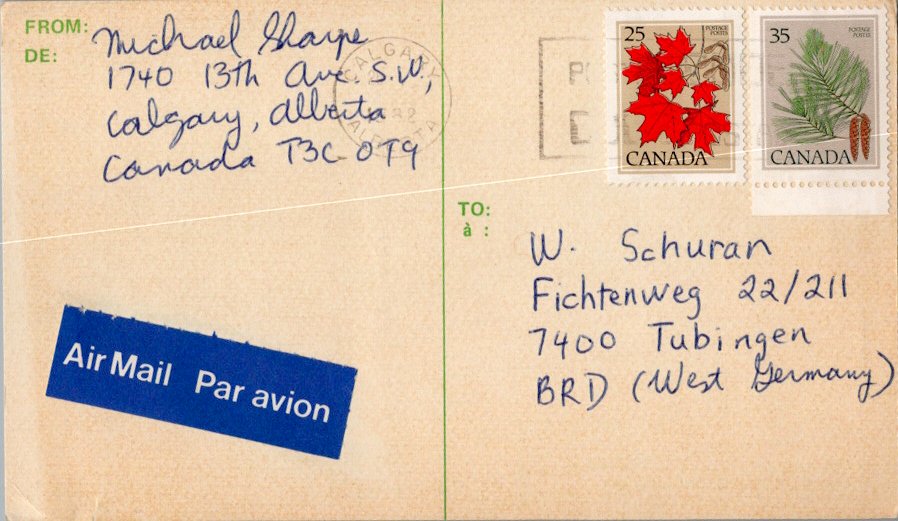 FROM:
DE:
Michael Sharpe
1740 13th Ave. S.W,
Calgary, Alberta
Canada T3C 0T9
CALGARY
25
POSTAGE
POSTES
CANADA
35
POSTAGE
POSTES
CANADA
TO:
à :
W. Schuran
Fichtenweg 22/211
7400 Tubingen
BRD (West Germany)
Air Mail Par avion